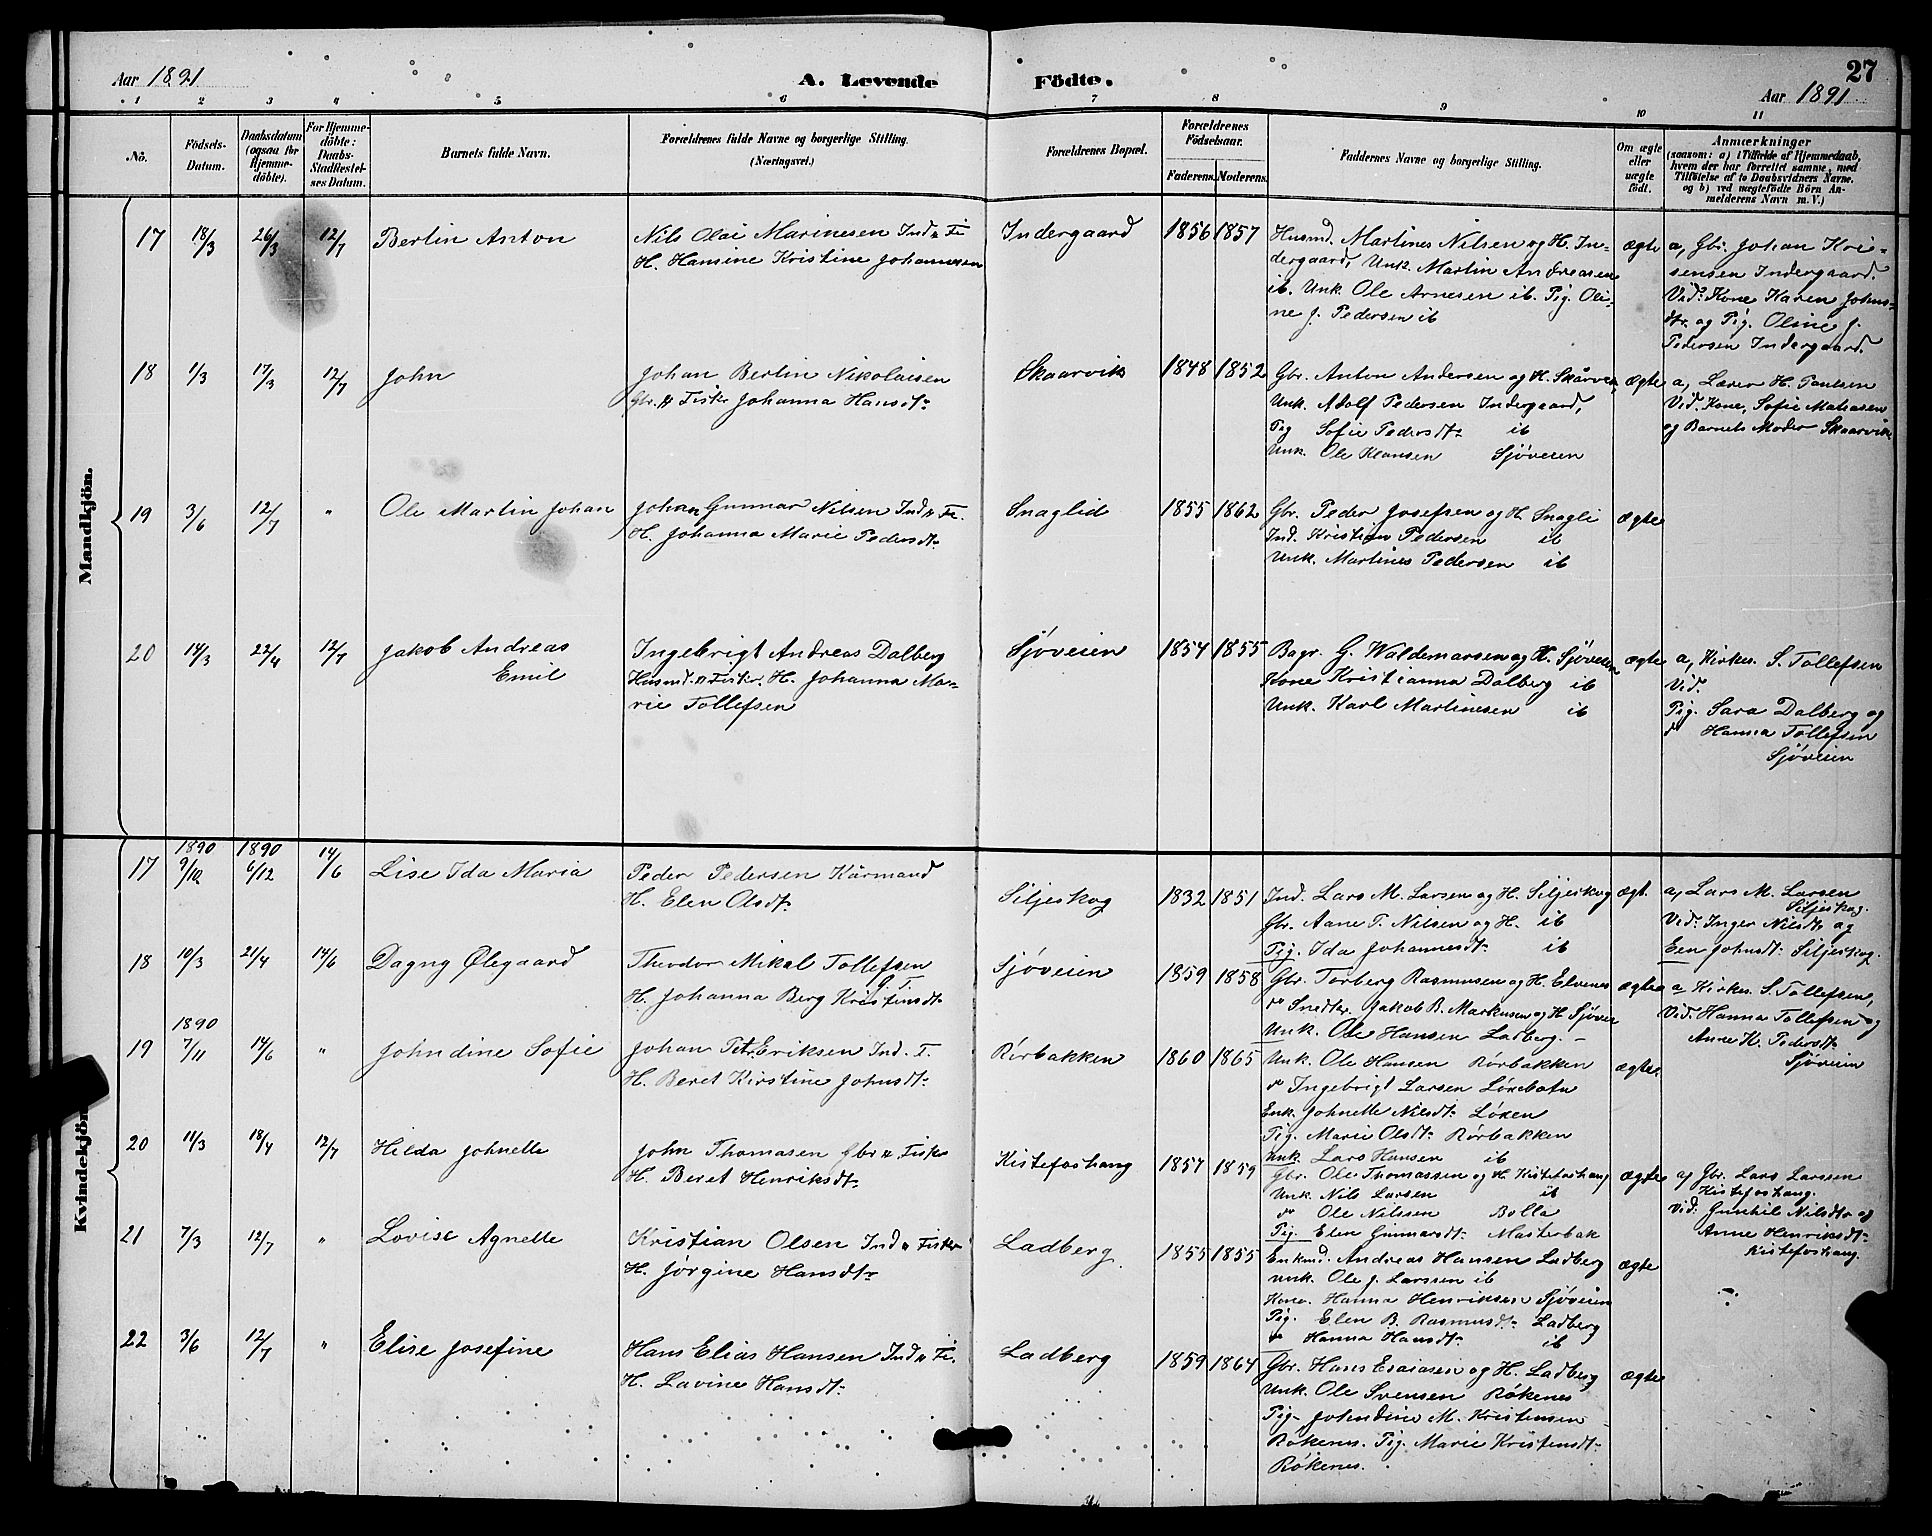 Aar 1891
A. Levende
Födte.
27
Aar 1891
1 2 3 4 5 6 7 8 9 10 11
No.
Födsels-
Datum.
Daabsdatum
(ogsaa for
Hjemme-
döbte).
For Hjemme-
döbte:
Daabs-
Stadfæstel-
ses Datum.
Barnets fulde Navn.
Forældrenes fulde Navne og borgerlige Stilling.
(Næringsvei.)
Forældrenes Bopæl.
Forældrenes
Födselsaar.
Faderens. Moderens.
Faddernes Navne og borgerlige Stilling.
Om ægte
eller
uægte
født.
Anmærkninger
(saasom: a) i Tilfælde af Hjemmedaab,
hvem der har forrettet samme, med
Tilföielse af to Daabsvidners Navne.
og b) ved uægtefödte Börn An-
melderens Navn m. V.)
Mandkjön.
17 18/3 26/3 12/7 Berlin Anton
Nils Olai Marinesen Ind. & Fi
H. Hansine Kristine Johannesen
Indergaard 1856 1857
Husmd. Martines Nilsen og H. In-
dergaard, Unk. Martin Andreasen
ib. Unk. Ole Arnesen ib. Pig. Oli-
ne J. Pedersen ib
ægte
a, Gbr. Johan Kri-
sensen Indergaard.
Vid: Kone Karen Johns-
dtr. og Pig. Oline J.
Pedersen Indergaard.
18 1/3 17/3 12/7 John
Johan Berlin Nikolaisen
Gbr. & Fisker Johanna Hansdt:
Skaarvik 1848 1852
Gbr. Anton Andersen og H. Skårven,
Unk. Adolf Pedersen Indergaard,
Pig Sofie Pedersdt: ib
Unk. Ole Klausen Sjöveien
ægte
a, Lærer H. Paulsen
Vid. Kone, Sofie Mathasen
og Barnets Moder Skaarvik
19 3/6 12/7 " Ole Martin Johan
Johan Gunnar Nilsen Ind & Fi.
H. Johanna Marie Pedersdt:
Snaglid 1855 1862
Gbr. Peder Josefsen og H. Snagli
Ind. Kristian Pedersen ib
Unk. Martines Pedersen ib
ægte
20 14/3 22/4 12/7 Jakob Andreas
Emil
Ingebrigt Andreas Dalberg
Husmd. & Fisker. H. Johanna Ma-
rie Tollefsen
Sjöveien 1854 1855
Bagr. G. Waldemarsen og H. Sjöveien
Kone Kristianna Dalberg ib
Unk. Karl Martinesen ib
ægte
a, Kirkes. S. Tollefsen
Vid.
Pig. Sara Dalberg og
do Hanna Tollefsen
Sjöveien
Kvindekjön.
17 1890 9/10 1890 6/12 14/6 Lise Ida Maria
Peder Pedersen Kärmand
H. Elen Olsdt:
Siljeskog 1832 1851
Ind. Lars M. Larsen og H. Siljeskog
Gbr. Aane T. Nilsen og H. ib
Pig. Ida Johannesdt: ib
ægt.
a, Lars M. Larsen
Siljeskog.
Vid: Inger Nilsdtr og
Een Johnsdt: Siljeskog.
18 10/3 21/4 14/6 Dagny Ølegaard
Theodor Mikal Tollefsen
G. F.
H. Johanna Berg Kristensdt:
Sjöveien 1859 1858
Gbr. Torberg Rasmusen og H. Elvenes
do Snedker Jakob B. Markusen og H Sjövei
Unk. Ole Hansen Ladberg. -
ægte
a Kirkes. S. Tollefsen,
Vid: Hanna Tollefsen og
Anne K. Pedersdt:
Sjöveien
19 1890 7/11 14/6 " Johndine Sofie
Johan Pet. Eriksen Ind. F.
H. Beret Kirstine Johnsdt:
Rörbakken 1860 1865
Unk. Ole Hansen Rörbakken
do Ingebrigt Larsen Löxebotn
Enk. Johnette Nilsdt: Löxen
Pig. Marie Olsdt: Rörbakken
Unk. Lars Hansen ib
ægte.
20 11/3 18/4 12/7 Hilda Johnette
John Thomasen Gbr & Fisker
H. Beret Henriksdt:
Kistefoshaug 1857 1859
Gbr. Ole Thomassen og H. Kistefoshaug
Unk. Nils Larsen ib
do Ole Nilssen Bolla
Pig. Elen Gunnarsdt: Masterbak
ægte
a, Gbr. Lars Larssen
Kistefoshaug.
Vid: Gunhil Nilsdtr og
Anne Henriksdt:
Kistefoshaug.
21 7/3 12/7 " Lovise Agnette
Kristian Olsen Ind & Fisker
H. Jörgine Hansdt:
Ladberg 1855 1855
Enkmd. Andreas Hansen Ladberg
Unk. Ole J. Larssen ib
Kone. Hanna Henriksen Sjöveien
Pig. Elen B. Rasmusdt: Ladberg
do Hanna Hansdt: ib
ægte
22 3/6 12/7 " Elise Josefine
Hans Elias Hansen Ind & Fi.
H. Lavine Hansdt:
Ladberg 1859 1864
Gbr. Hans Esaiasen og H. Ladberg
Unk. Ole Svensen Rökenes
Pig. Johndine M. Kristensen
Rökenes. Pig. Marie Kristensdt:
Rökenes.
ægte